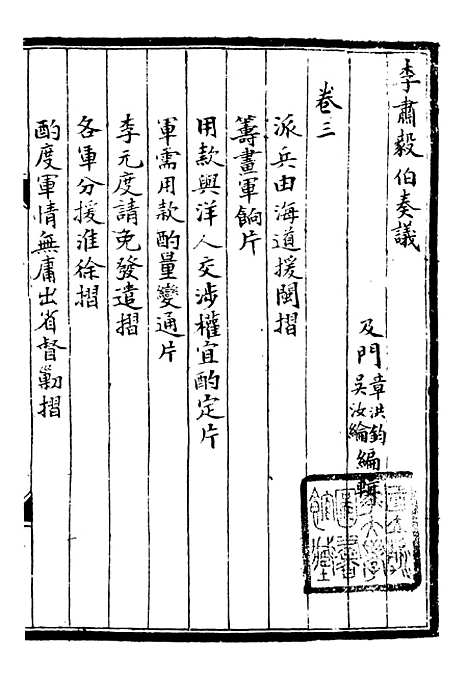 李肅毅伯奏議
及門章洪鈞吳汝綸編輯
卷三
派兵由海道援閩摺
籌畫軍餉片
用款與洋人交涉權宜酌定片
軍需用款酌量變通片
李元度請免發遣摺
各軍分援淮徐摺
酌度軍情無庸出省督勦摺